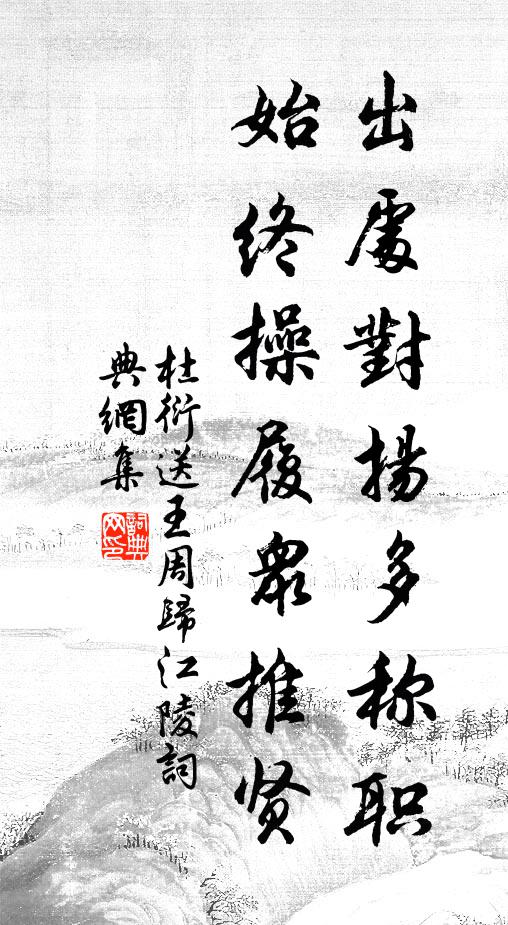 出處對揚多称职
始终操履眾推贤
杜衍送王周歸江陵詞
典網集
詞典网印